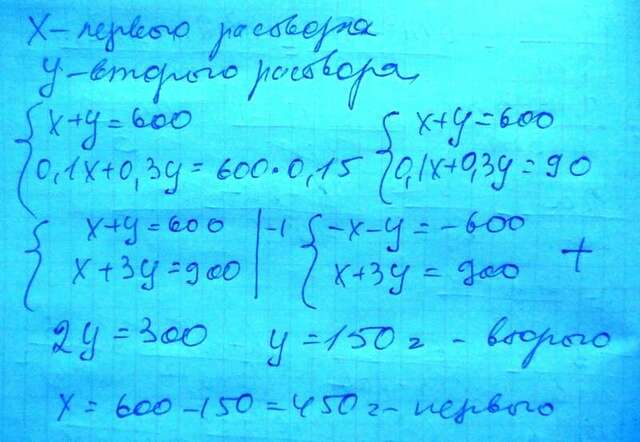 X - первого раствора
У - второго раствора
x+y=600 x+y=600
0,1x+0,3y=600•0,15 0,1x+0,3y=90
x+y=600 |-1 -x-y=-600
x+3y=900 x+3y=900 +
2y=300 y=150г - второго
x=600-150=450г- первого